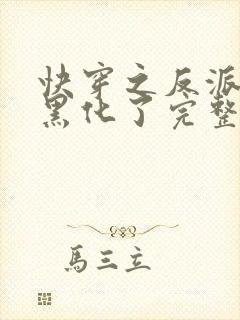 快穿之反派
黑化了完整
馬三立